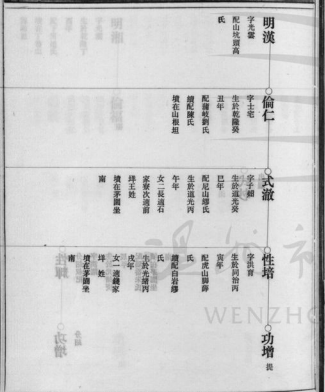 明漢
字光雲
配山坑頭高
氏
倫仁
字士宅
生於乾隆癸
丑年
配蒲岐劉氏
續配陳氏
墳在山根垣
式澈
字子如
生於道光癸
巳年
配尼山繆氏
生於道光丙
午年
女二長適石
家寮次適前
垟王姓
墳在茅園坐
南
性培
字洪喜
生於同治丙
寅年
配虎山脚薛
氏
續配白岩繆
氏
生於光緒丙
戌年
女一適錢家
垟姓
墳在茅園坐
南
功增
WENZHO